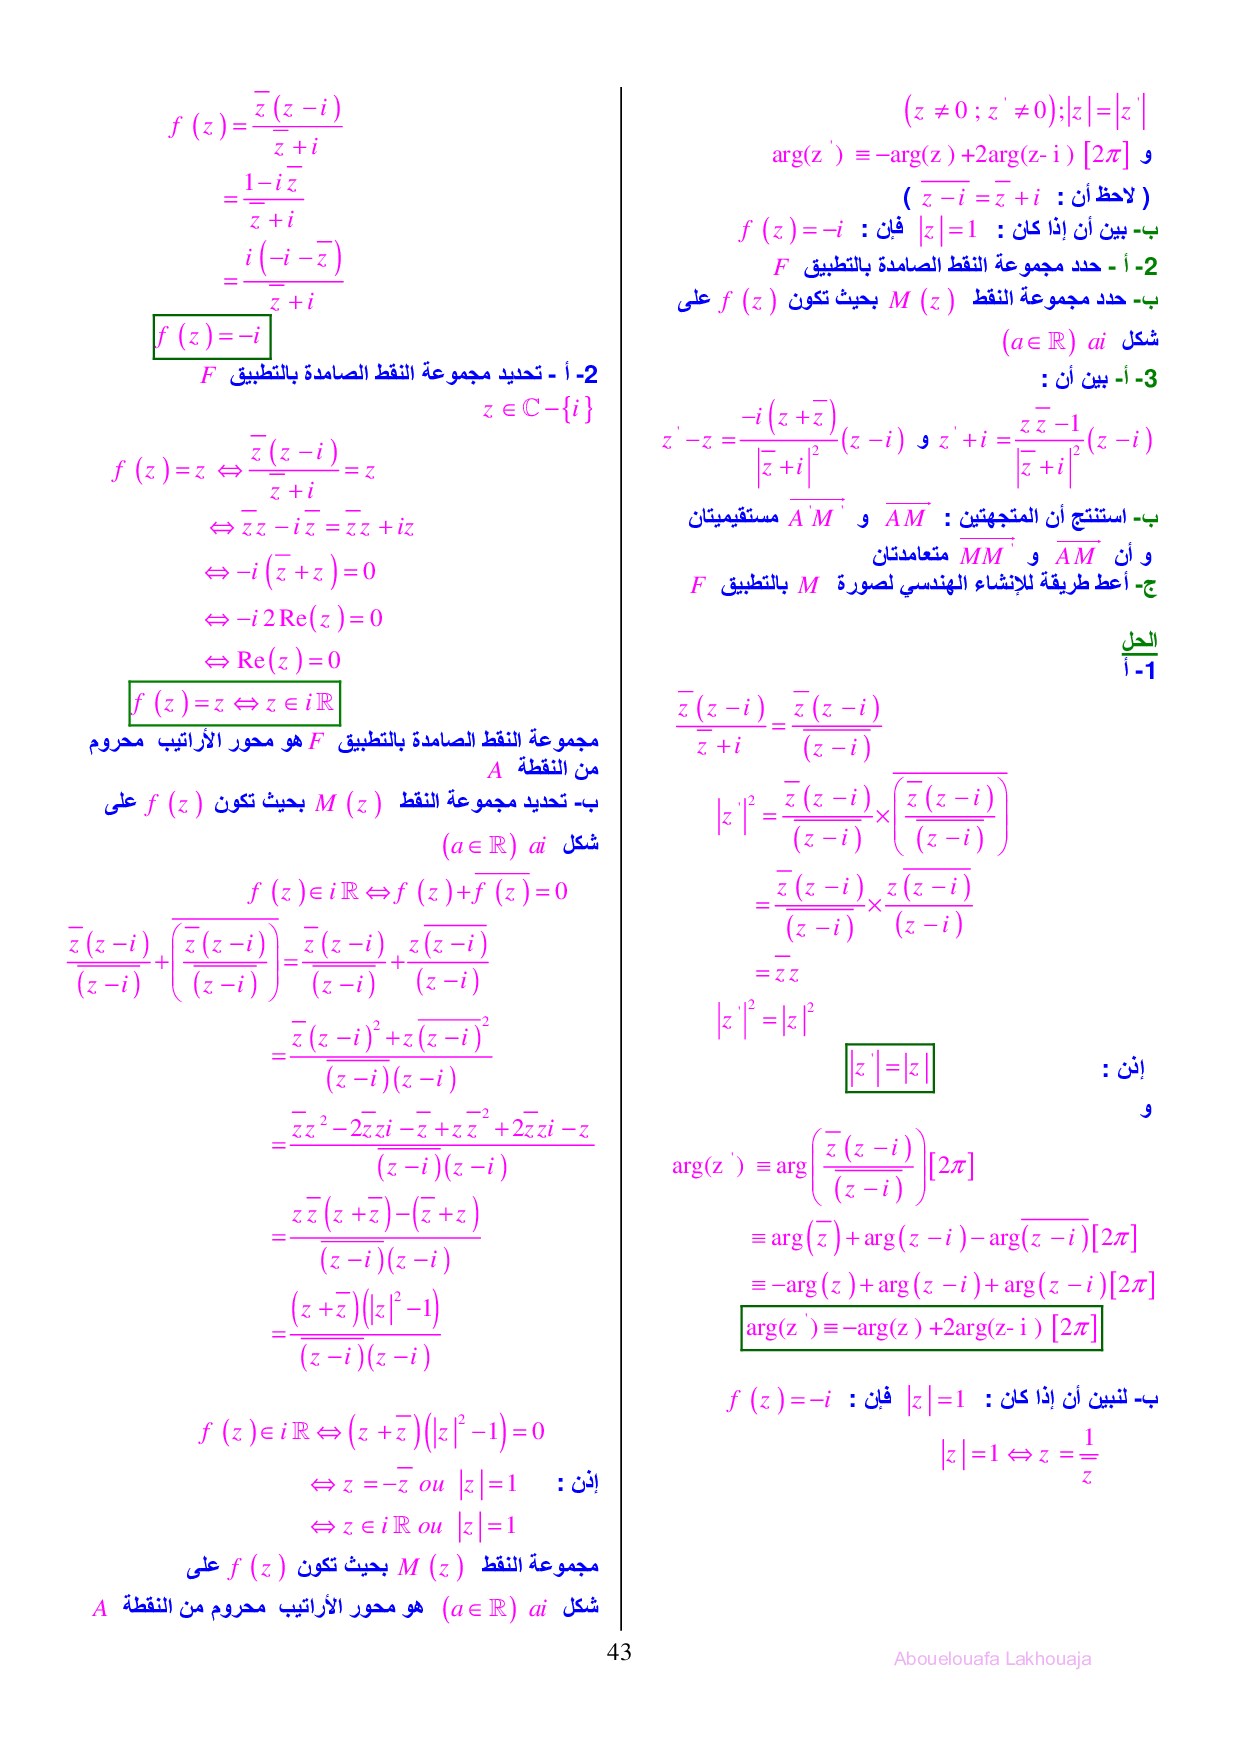 (z ≠ 0 ; z' ≠ 0);|z| = |z'|
و arg(z') ≡ −arg(z) +2arg(z- i ) [2π]
( لاحظ أن : \overline{z − i} = \overline{z} + i )
ب- بين أن إذا كان : |z| = 1 فإن : f (z) = −i
2- أ - حدد مجموعة النقط الصامدة بالتطبيق F
ب- حدد مجموعة النقط M (z) بحيث تكون f (z) على
شكل ai (a ∈ ℝ)
3- أ- بين أن :
z' + i = \frac{z\overline{z} − 1}{|\overline{z} + i|^2}(z − i) و z' − z = \frac{−i(z + \overline{z})}{|\overline{z} + i|^2}(z − i)
ب- استنتج أن المتجهتين : \overrightarrow{AM} و \overrightarrow{A'M'} مستقيميتان
و أن \overrightarrow{AM} و \overrightarrow{MM'} متعامدتان
ج- أعط طريقة للإنشاء الهندسي لصورة M بالتطبيق F
الحل
1- أ
\frac{\overline{z}(z − i)}{\overline{z} + i} = \frac{\overline{z}(z − i)}{\overline{(z − i)}}
|z'|^2 = \frac{\overline{z}(z − i)}{\overline{(z − i)}} × \overline{\left(\frac{\overline{z}(z − i)}{\overline{(z − i)}}\right)}
= \frac{\overline{z}(z − i)}{\overline{(z − i)}} × \frac{z\overline{(z − i)}}{(z − i)}
= \overline{z}z
|z'|^2 = |z|^2
إذن : |z'| = |z|
و
arg(z') ≡ arg\left(\frac{\overline{z}(z − i)}{\overline{(z − i)}}\right)[2π]
≡ arg(\overline{z}) + arg(z − i) − arg\overline{(z − i)}[2π]
≡ −arg(z) + arg(z − i) + arg(z − i)[2π]
arg(z') ≡ −arg(z) +2arg(z- i ) [2π]
ب- لنبين أن إذا كان : |z| = 1 فإن : f (z) = −i
|z| = 1 ⇔ z = \frac{1}{\overline{z}}
f (z) = \frac{\overline{z}(z − i)}{\overline{z} + i}
= \frac{1 − i\overline{z}}{\overline{z} + i}
= \frac{i(−i − \overline{z})}{\overline{z} + i}
f (z) = −i
2- أ - تحديد مجموعة النقط الصامدة بالتطبيق F
z ∈ ℂ − {i}
f (z) = z ⇔ \frac{\overline{z}(z − i)}{\overline{z} + i} = z
⇔ \overline{z}z − i\overline{z} = \overline{z}z + iz
⇔ −i(\overline{z} + z) = 0
⇔ −i 2 Re(z) = 0
⇔ Re(z) = 0
f (z) = z ⇔ z ∈ iℝ
مجموعة النقط الصامدة بالتطبيق F هو محور الأراتيب محروم
من النقطة A
ب- تحديد مجموعة النقط M (z) بحيث تكون f (z) على
شكل ai (a ∈ ℝ)
f (z) ∈ iℝ ⇔ f (z) + \overline{f (z)} = 0
\frac{\overline{z}(z − i)}{\overline{(z − i)}} + \overline{\left(\frac{\overline{z}(z − i)}{\overline{(z − i)}}\right)} = \frac{\overline{z}(z − i)}{\overline{(z − i)}} + \frac{z\overline{(z − i)}}{(z − i)}
= \frac{\overline{z}(z − i)^2 + z\overline{(z − i)}^2}{\overline{(z − i)}(z − i)}
= \frac{\overline{z}z^2 − 2\overline{z}zi − \overline{z} + z\overline{z}^2 + 2\overline{z}zi − z}{\overline{(z − i)}(z − i)}
= \frac{z\overline{z}(z + \overline{z}) − (\overline{z} + z)}{\overline{(z − i)}(z − i)}
= \frac{(z + \overline{z})(|z|^2 − 1)}{\overline{(z − i)}(z − i)}
f (z) ∈ iℝ ⇔ (z + \overline{z})(|z|^2 − 1) = 0
إذن : ⇔ z = −\overline{z} ou |z| = 1
⇔ z ∈ iℝ ou |z| = 1
مجموعة النقط M (z) بحيث تكون f (z) على
شكل ai (a ∈ ℝ) هو محور الأراتيب محروم من النقطة A
43
Abouelouafa Lakhouaja